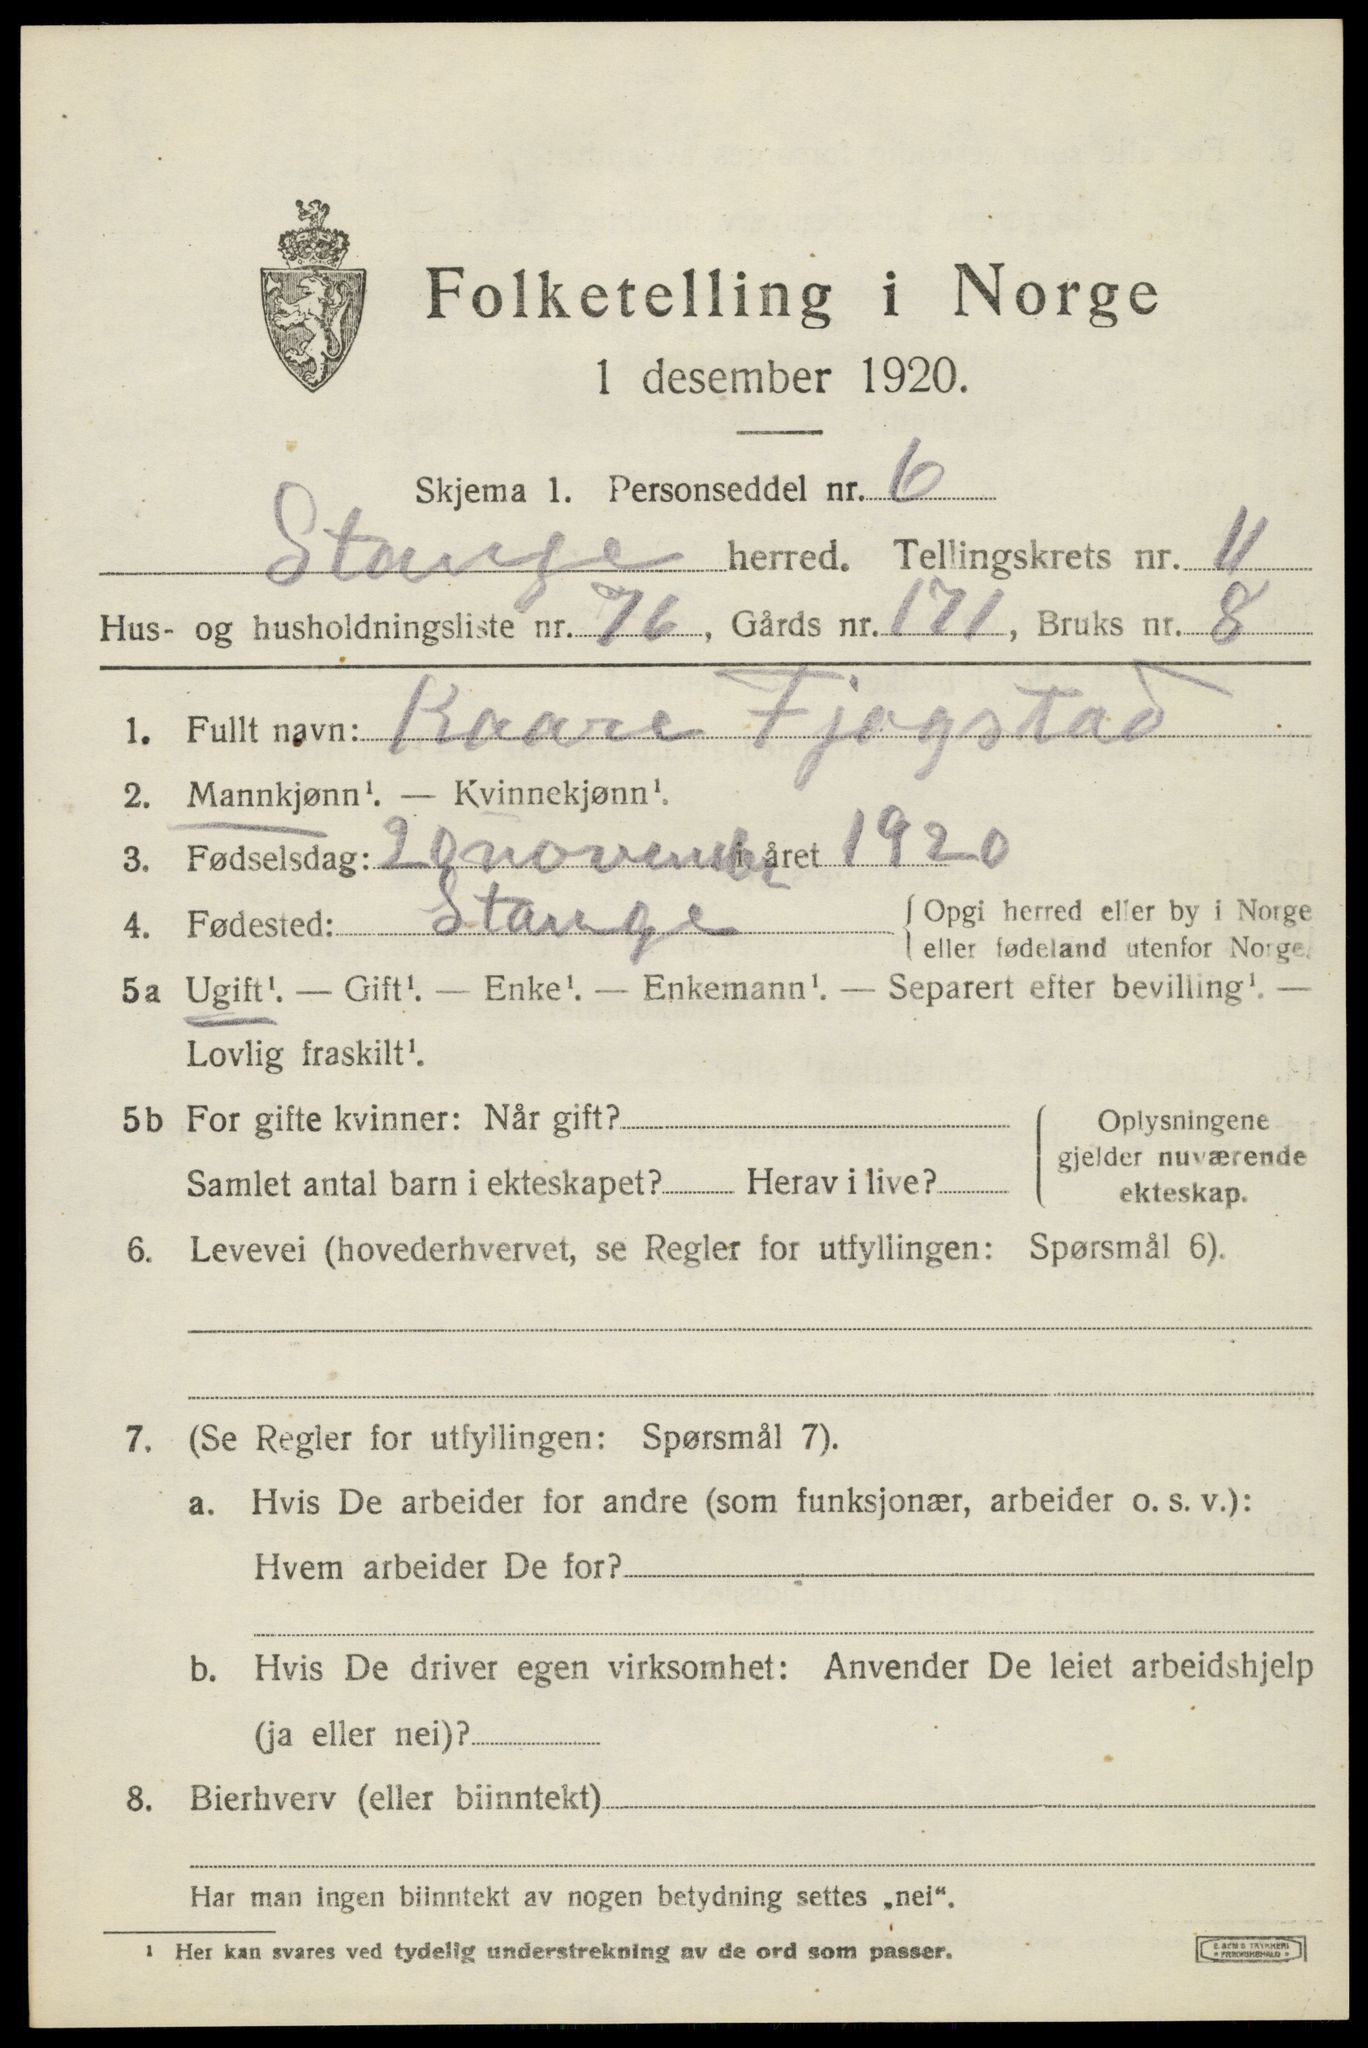 Folketelling i Norge
1 desember 1920.
Skjema 1. Personseddel nr. 6
Stange herred. Tellingskrets nr. 11
Hus- og husholdningsliste nr. 76, Gårds nr. 171, Bruks nr. 8
1. Fullt navn: Kaare Fjogstad
2. Mannkjønn¹. — Kvinnekjønn¹.
3. Fødselsdag: 20 november i året 1920
4. Fødested: Stange { Opgi herred eller by i Norge
eller fødeland utenfor Norge.
5a Ugift¹. — Gift¹. — Enke¹. — Enkemann¹. — Separert efter bevilling¹. —
Lovlig fraskilt¹.
5b For gifte kvinner: Når gift?
Samlet antal barn i ekteskapet? Herav i live?
Oplysningene
gjelder nuværende
ekteskap.
6. Levevei (hovederhvervet, se Regler for utfyllingen: Spørsmål 6).
7. (Se Regler for utfyllingen: Spørsmål 7).
a. Hvis De arbeider for andre (som funksjonær, arbeider o. s. v.):
Hvem arbeider De for?
b. Hvis De driver egen virksomhet: Anvender De leiet arbeidshjelp
(ja eller nei)?
8. Bierhverv (eller biinntekt)
Har man ingen biinntekt av nogen betydning settes „nei“.
¹ Her kan svares ved tydelig understrekning av de ord som passer.